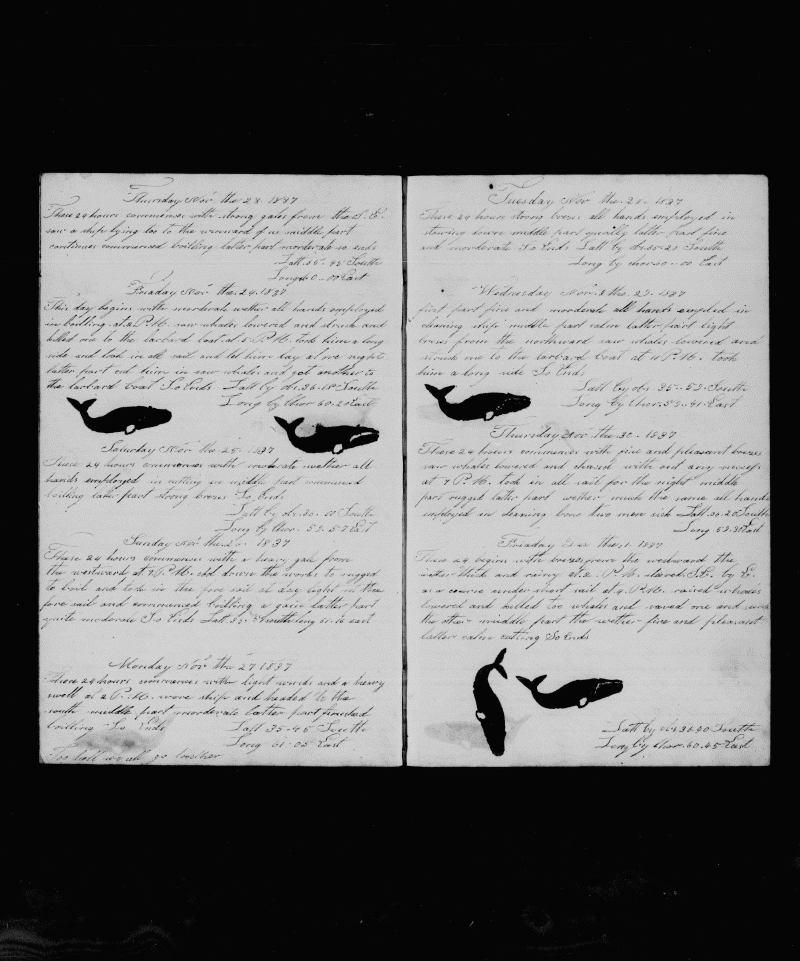 Thursday Nov the 23. 1837
These 24 hours commences with strong gales from the S. E.
saw a ship lying too to the winward of us middle part
continues commenced boiling latter part morderate so ends
Latt. 35-45 South
Long 60-00 East
Friaday Nov the 24. 1837
This day begins with morderate wether all hands employed
in boiling at 2 P.M. saw whales lowered and struck and
killed one to the larbard boat at 5 P.M. took him a long
side and took in all sail and let him lay at ove night
latter part cut him in saw whales and got another to
the larbard boat So Ends Latt by obs. 36-18 South
Long by Chor 60-20 East
Saturday Nov the 25. 1837
These 24 hours commences with morderate wether all
hands employed in cutting in middle part commenced
boilling latter part strong brezes So Ends
Latt by obs. 36-10 South
Long by Chor. 59-57 East
Sunday Nov the 1837
These 24 hours commences with a heavy gale from
the westward at 7 P.M. coold down the works to rugged
to boil and took in the fore sail at day light set the
fore sail and commenced boiling a gain latter part
quite morderate So Ends Latt South long East
Monday Nov the 27 1837
These 24 hours commences with light winds and a heavy
swell at 2 P.M. wore ship and headed to the
south middle part morderate latter part finished
boilling So Ends Latt 35-45 South
Long 61-05 East
we all go together
Tuesday Nov the 28. 1837
These 24 hours strong brezes all hands employed in
stowing down middle part squally latter part fine
and morderate So Ends Latt by obs. 35-20 South
Long by chor 60-00 East
Wednesday Nov the 29. 1837
first part fine and morderate all hands emploed in
cleaning ship middle part calm latter part light
brezes from the northward saw whales lowered and
struck one to the larbard boat at P.M. took
him a long side So Ends
Latt by obs 35-53 South
Long by Chor. 59-41 East
Thursday Nov the 30-1837
These 24 hours commences with fine and pleasant brezes
saw whales lowered and chased with out any success
at 7 P.M. took in all sail for the night middle
part rugged latter part wether much the same all hands
employed in cleaning bone two men sick Latt. 36-20 South
Long 59.31 East
Friaday Dec the 1. 1837
These 24 begins with brezes from the westward the
wether thick and rainy at 2 P.M. steared S.E. by E.
as a course under short sail at 9 P.M. raised whales
lowered and killed too whales and saved one and sunk
the other middle part the wether fine and pleasant
latter calm cutting So Ends
Latt by obs 36.40 South
Long by Chor. 60.45 East